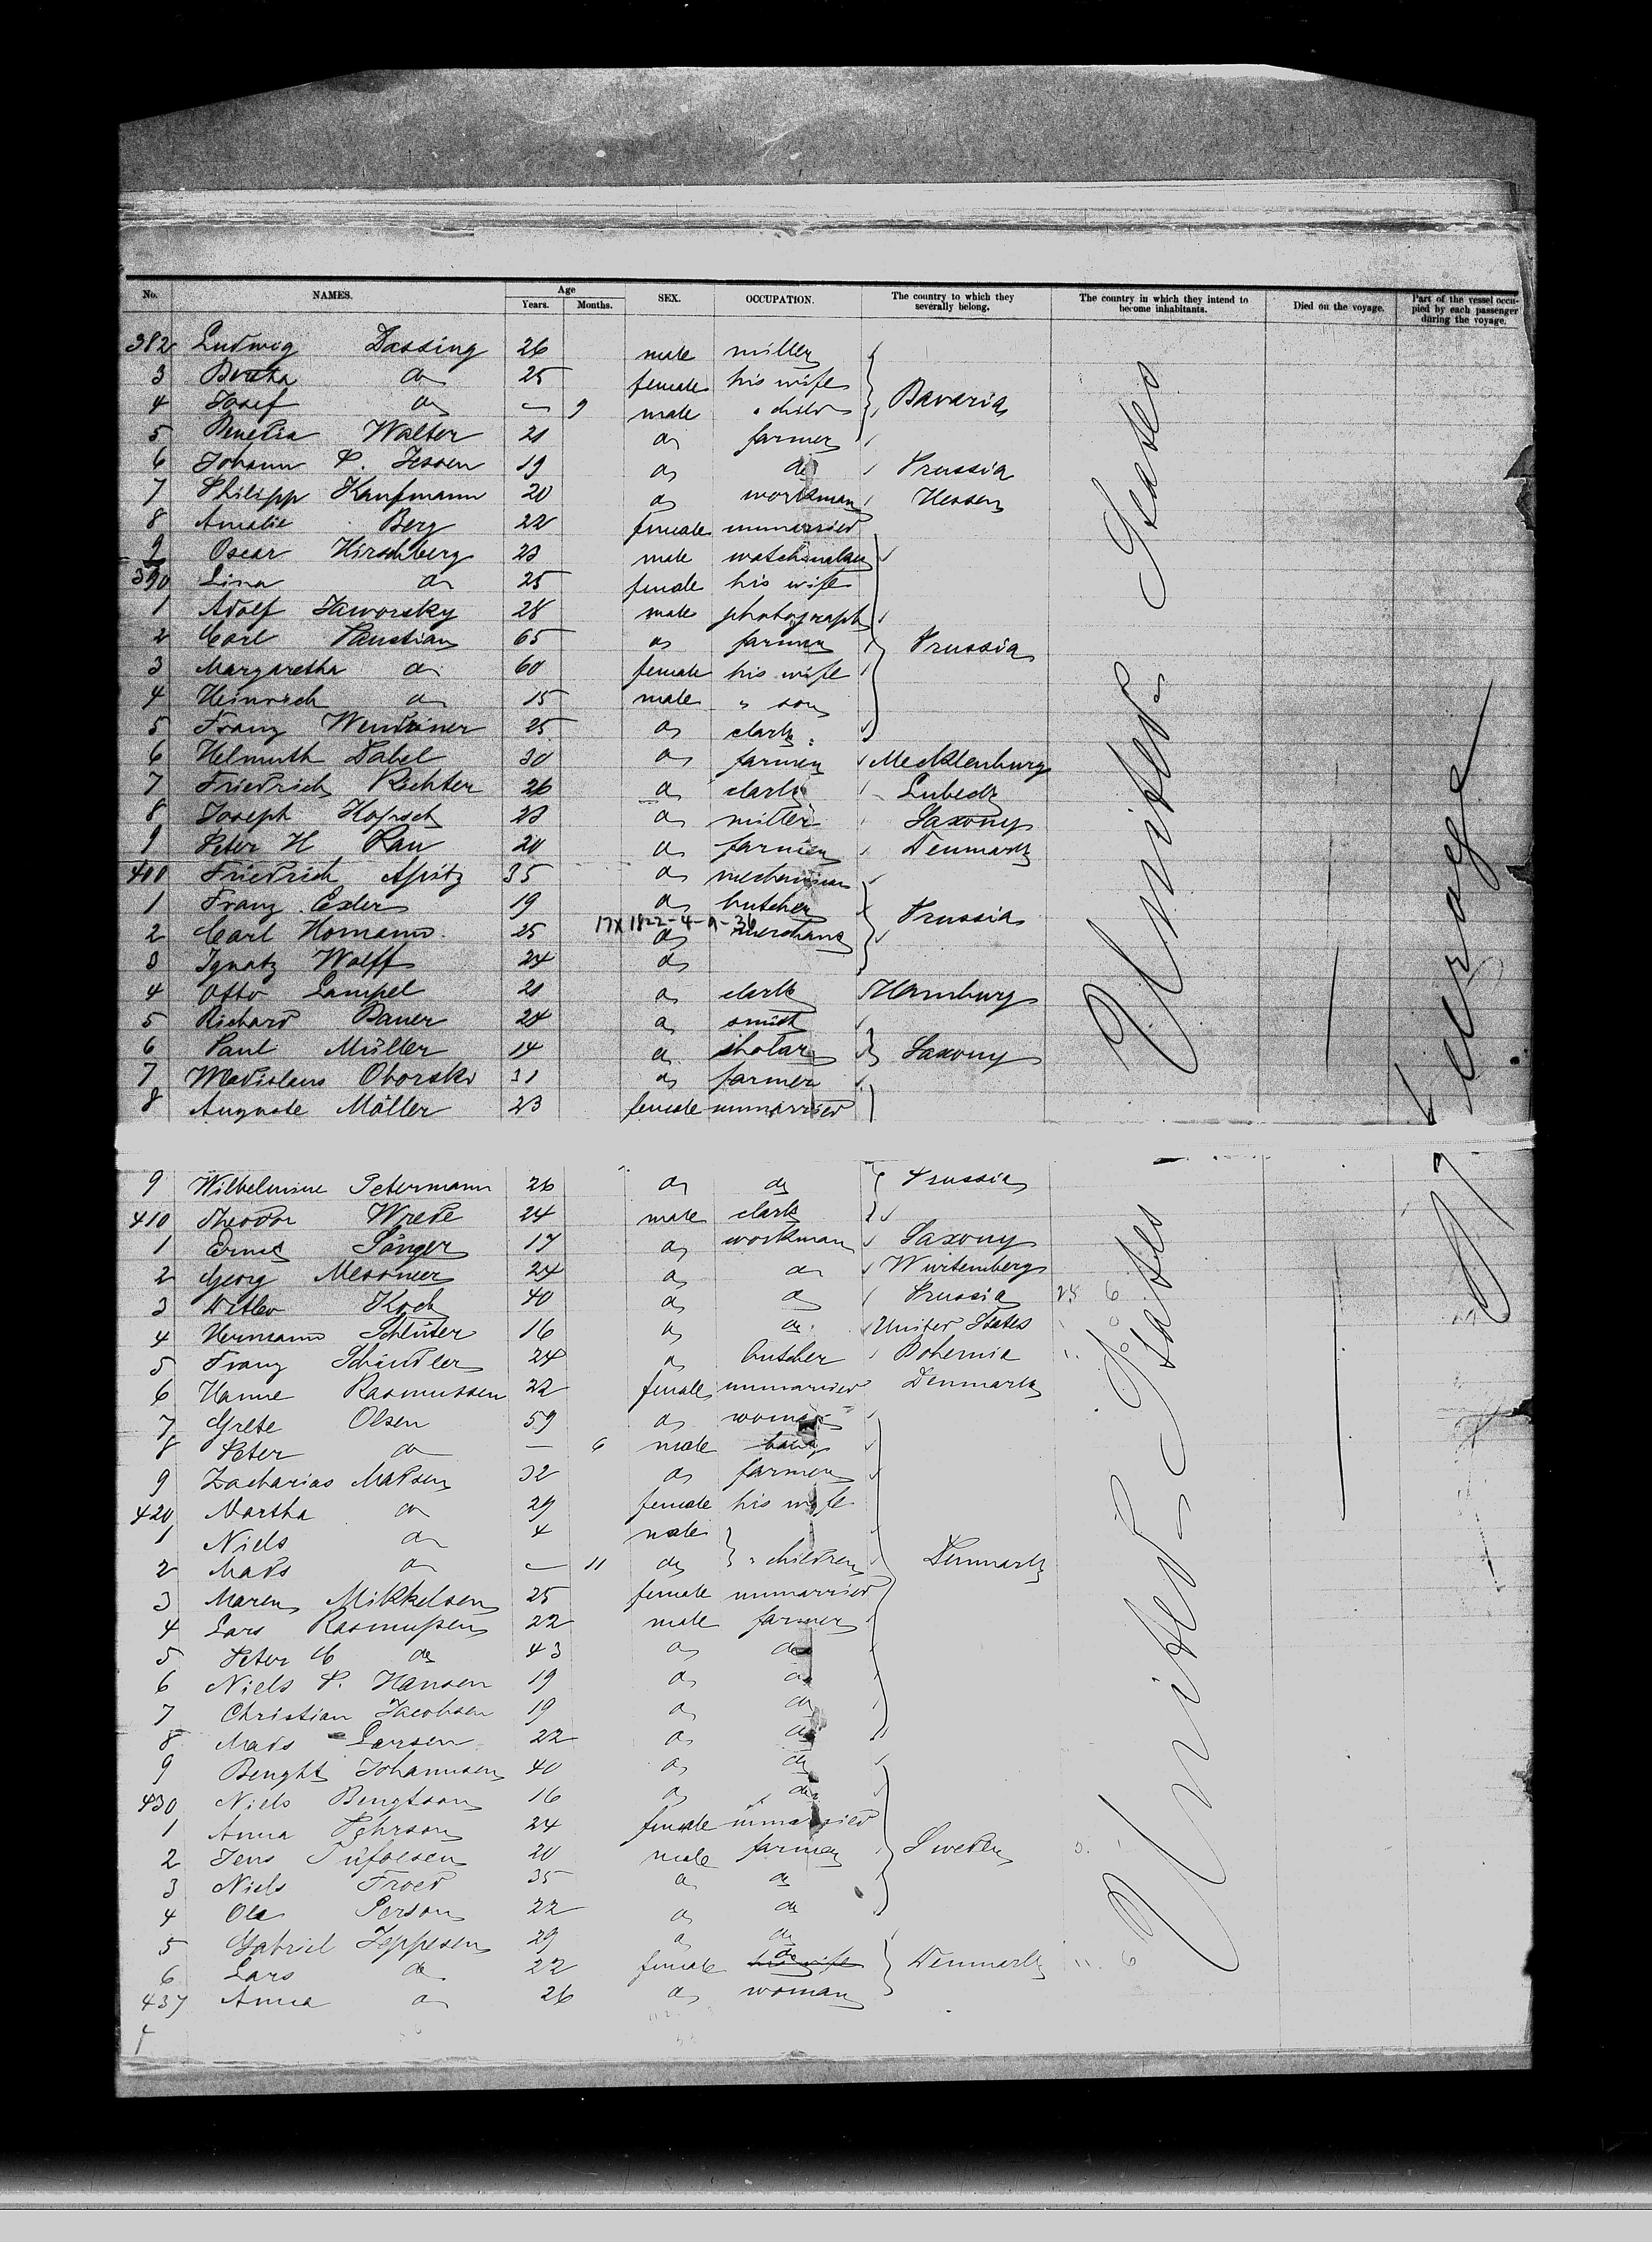 No. NAMES. Age Years. Months. SEX. OCCUPATION. The country to which they severally belong. The country in which they intend to become inhabitants. Died on the voyage. Part of the vessel occupied by each passenger during the voyage.
382 Ludwig Dassing 26 male miller
3 Bertha do 25 female his wife
4 Josef do — 9 male " child Bavaria
5 Walter 21 do farmer
6 Johann P. Jessen 19 do do Prussia
7 Philipp Kaufmann 20 do workman Hessen
8 Amalie Berg 22 female unmarried
9 Oscar Hirschberg 23 male watchmaker
390 Lina do 25 female his wife
1 Adolf Jaworsky 28 male photograph
2 Carl Paustian 65 do farmer Prussia
3 Margaretha do 60 female his wife
4 Heinrich do 15 male " son
5 Franz Wendriner 25 do clark
6 Helmuth Dabel 30 do farmer Mecklenburg
7 Friedrich Richter 26 do clark Lubeck
8 Joseph 23 do miller Saxony
9 Peter H Rau 20 do farmer Denmark
400 Friedrich Apitz 35 do mechanician
1 Franz Exler 19 do butcher Prussia
17X1822-4-9-36
2 Carl Homann 25 do merchant
3 Ignatz Wolff 24 do
4 Otto Lampel 21 do clark Hamburg
5 Richard Bauer 24 do smith
6 Paul Müller 14 do scholar Saxony
7 Wladislaus Oborski 31 do farmer
8 Auguste Möller 23 female unmarried
9 Wilhelmine Petermann 26 do do Prussia
410 Theodor Wrede 24 male clark
1 Ernst Sänger 17 do workman Saxony
2 Georg Messmer 24 do do Wurtemberg
3 Detlev Koch 40 do do Prussia
4 Hermann Schlüter 16 do do United States
5 Franz Schindler 24 do butcher Bohemia
6 Hanne Rasmussen 22 female unmarried Denmark
7 Grete Olsen 59 do woman
8 Peter do — 6 male baby
9 Zacharias Madsen 32 do farmer
420 Martha do 29 female his wife
1 Niels do 4 male
2 Mads do — 11 do " children Denmark
3 Maren Mikkelsen 25 female unmarried
4 Lars Rasmussen 22 male farmer
5 Peter C do 43 do do
6 Niels P. Hansen 19 do do
7 Christian Jacobsen 19 do do
8 Mads Larsen 22 do do
9 Benght Johannsen 40 do do
430 Niels Bengtson 16 do do
1 Anna Pehrson 24 female unmarried
2 Jens 20 male farmer Sweden
3 Niels Froed 35 do do
4 Ole Person 22 do do
5 Gabriel Jeppesen 29 do do
6 Lars do 22 female his wife do Denmark
437 Anna do 26 do woman
United States
United States
Steerage